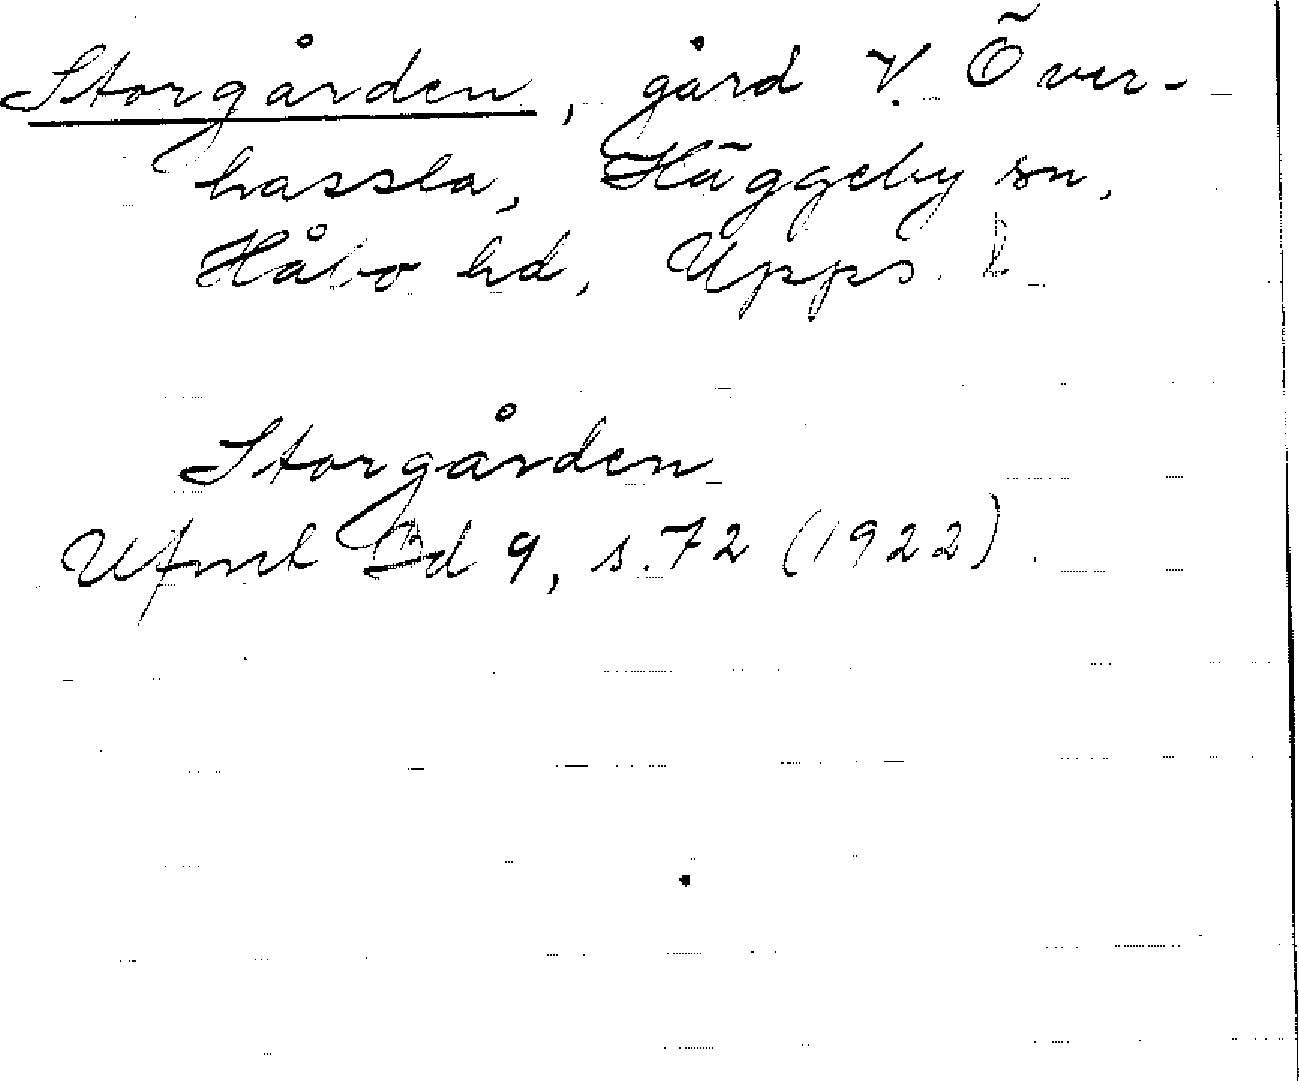 Storgården, gård V. Över-
hassla, Häggeby sn,
Håbo hd, Upps. l
Storgården
Ufmh Bd 9, s. 72 (1922).